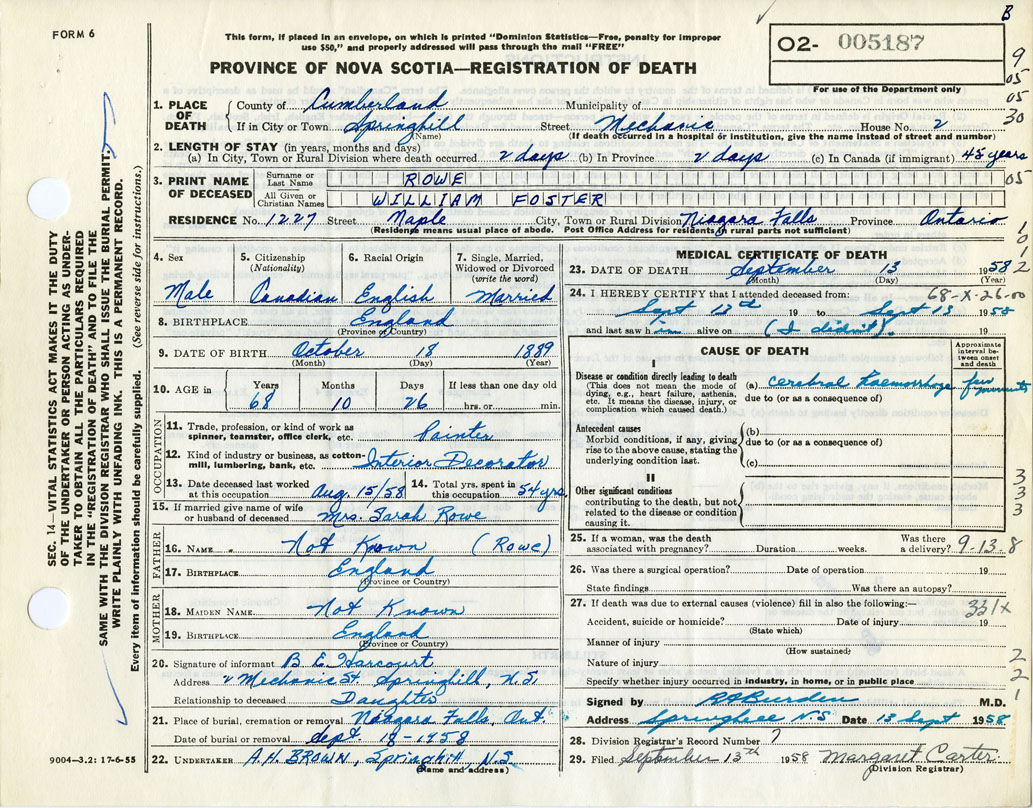 B
FORM 6
This form, if placed in an envelope, on which is printed "Dominion Statistics—Free, penalty for improper
use $50," and properly addressed will pass through the mail "FREE"
02- 005187
For use of the Department only
PROVINCE OF NOVA SCOTIA—REGISTRATION OF DEATH
9
05
05
30
1. PLACE OF DEATH
County of Cumberland Municipality of
If in City or Town Springhill Street Mechanic House No. 2
(Name) (If death occurred in a hospital or institution, give the name instead of street and number)
2. LENGTH OF STAY (in years, months and days)
(a) In City, Town or Rural Division where death occurred 2 days (b) In Province 2 days (c) In Canada (if immigrant) 45 years
3. PRINT NAME OF DECEASED
Surname or Last Name ROWE 05
All Given or Christian Names WILLIAM FOSTER
RESIDENCE No. 1227 Street Maple City, Town or Rural Division Niagara Falls Province Ontario
(Residence means usual place of abode. Post Office Address for residents in rural parts not sufficient)
1
0
1
2
4. Sex
Male
5. Citizenship
(Nationality)
Canadian
6. Racial Origin
English
7. Single, Married,
Widowed or Divorced
(write the word)
Married
8. BIRTHPLACE England
(Province or Country)
9. DATE OF BIRTH October 18 1889
(Month) (Day) (Year)
10. AGE in
Years Months Days If less than one day old
68 10 26 hrs. or min.
OCCUPATION
11. Trade, profession, or kind of work as
spinner, teamster, office clerk, etc. Painter
12. Kind of industry or business, as cotton-
mill, lumbering, bank, etc. Interior Decorator
13. Date deceased last worked
at this occupation Aug. 15/58
14. Total yrs. spent in
this occupation 54 yrs.
15. If married give name of wife
or husband of deceased Mrs. Sarah Rowe
FATHER
16. NAME Not Known (Rowe)
17. BIRTHPLACE England
(Province or Country)
MOTHER
18. MAIDEN NAME Not Known
19. BIRTHPLACE England
(Province or Country)
20. Signature of informant B E Harcourt
Address 2 Mechanic St. Springhill, N.S.
Relationship to deceased Daughter
21. Place of burial, cremation or removal Niagara Falls, Ont.
Date of burial or removal Sept. 18-1958
22. UNDERTAKER A.H. BROWN, Springhill, N.S.
(Name and address)
MEDICAL CERTIFICATE OF DEATH
23. DATE OF DEATH September 13 1958
(Month) (Day) (Year)
24. I HEREBY CERTIFY that I attended deceased from: 68-X-26-00
Sept 13th 19 to Sept 13 1958
and last saw him alive on (I didn't). 19
CAUSE OF DEATH
Approximate
interval be-
tween onset
and death
I
Disease or condition directly leading to death
(This does not mean the mode of
dying, e.g., heart failure, asthenia,
etc. It means the disease, injury, or
complication which caused death.)
(a) Cerebral Haemorrhage few minutes
due to (or as a consequence of)
Antecedent causes
Morbid conditions, if any, giving
rise to the above cause, stating the
underlying condition last.
(b)
due to (or as a consequence of)
(c)
II
Other significant conditions
contributing to the death, but not
related to the disease or condition
causing it.
3
3
3
25. If a woman, was the death
associated with pregnancy? Duration weeks.
Was there
a delivery? 9-13-8
26. Was there a surgical operation? Date of operation 19
State findings Was there an autopsy?
27. If death was due to external causes (violence) fill in also the following:— 331X
Accident, suicide or homicide? Date of injury 19
(State which)
Manner of injury
(How sustained)
Nature of injury
Specify whether injury occurred in industry, in home, or in public place
2
2
1
Signed by M.D.
Address Springhill NS Date 13 Sept 1958
28. Division Registrar's Record Number 7
29. Filed September 13th 1958 Margaret Carter
(Division Registrar)
SEC. 14—VITAL STATISTICS ACT MAKES IT THE DUTY
OF THE UNDERTAKER OR PERSON ACTING AS UNDER-
TAKER TO OBTAIN ALL THE PARTICULARS REQUIRED
IN THE "REGISTRATION OF DEATH" AND TO FILE THE
SAME WITH THE DIVISION REGISTRAR WHO SHALL ISSUE THE BURIAL PERMIT.
WRITE PLAINLY WITH UNFADING INK. THIS IS A PERMANENT RECORD.
Every item of information should be carefully supplied. (See reverse side for instructions.)
9004—3.2: 17-6-55